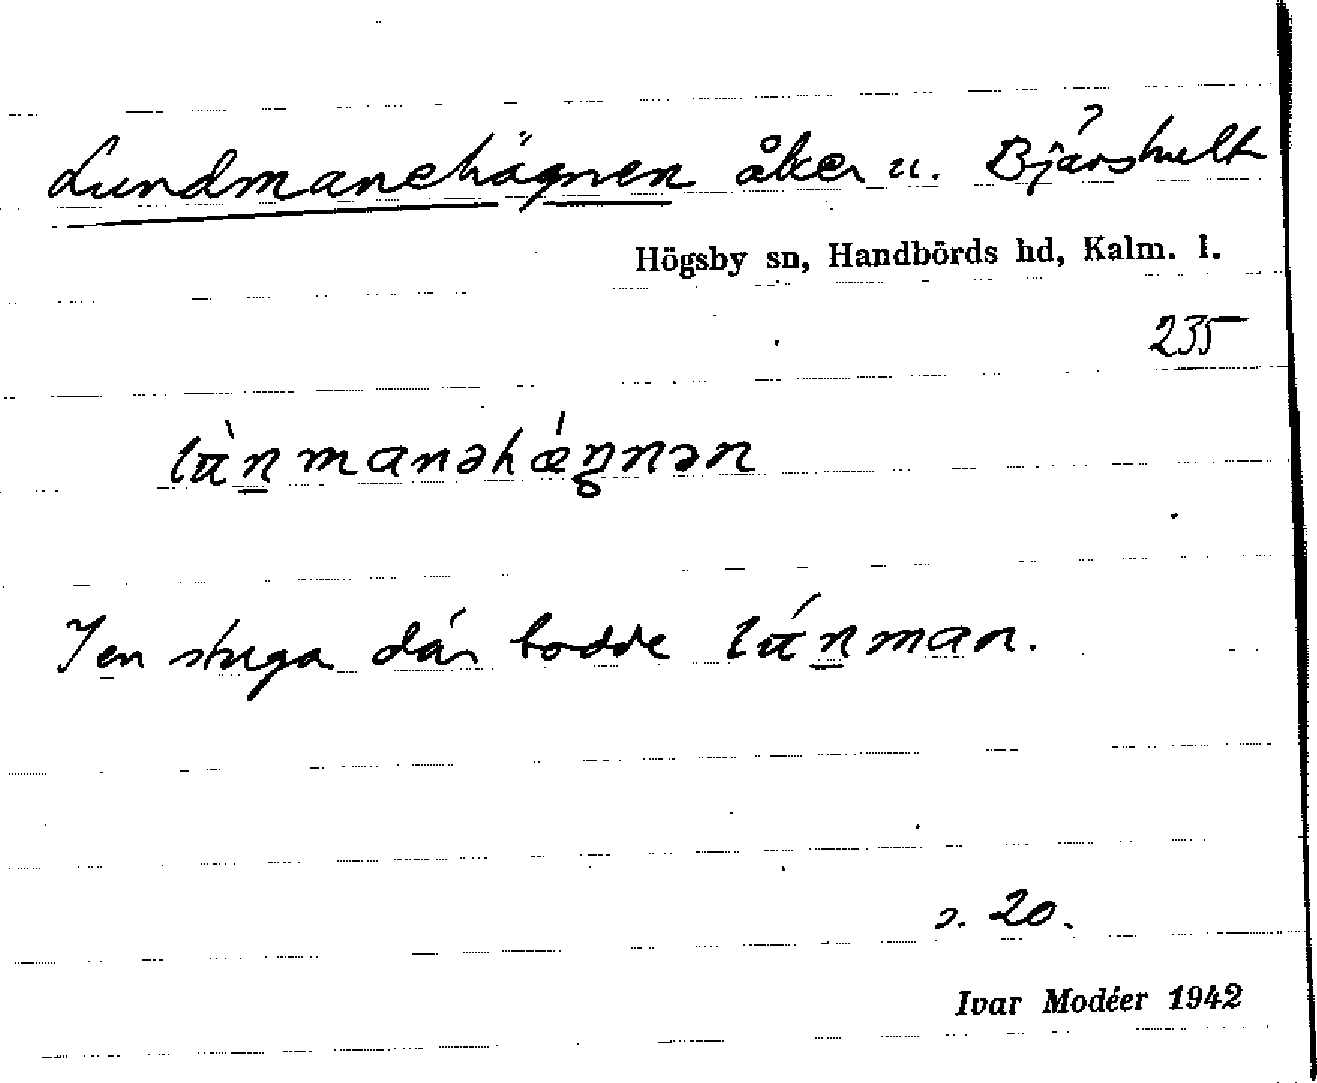 Lundmanehägnen åker u. Bjärshult
Högsby sn, Handbörds hd, Kalm. l.
235
lun̠manəhæŋnən
I en stuga där bodde lun̠man.
s. 20.
Ivar Modéer 1942